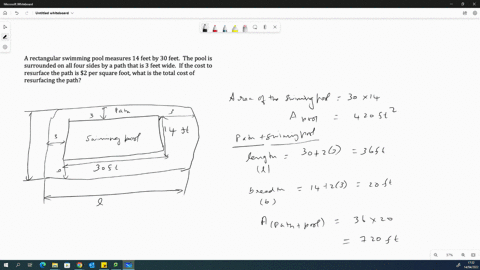 Microsoft Whiteboard
Untitled whiteboard
A rectangular swimming pool measures 14 feet by 30 feet. The pool is
surrounded on all four sides by a path that is 3 feet wide. If the cost to
resurface the path is $2 per square foot, what is the total cost of
resurfacing the path?
Path
3
3
3
Swimming pool
14 ft
30 ft
l
Area of the swimming pool = 30 × 14
A pool = 420 ft²
Path + swimming pool
length = 30 + 2(3) = 36 ft
(l)
breadth = 14 + 2(3) = 20 ft
(b)
A (Path + pool) = 36 × 20
= 720 ft